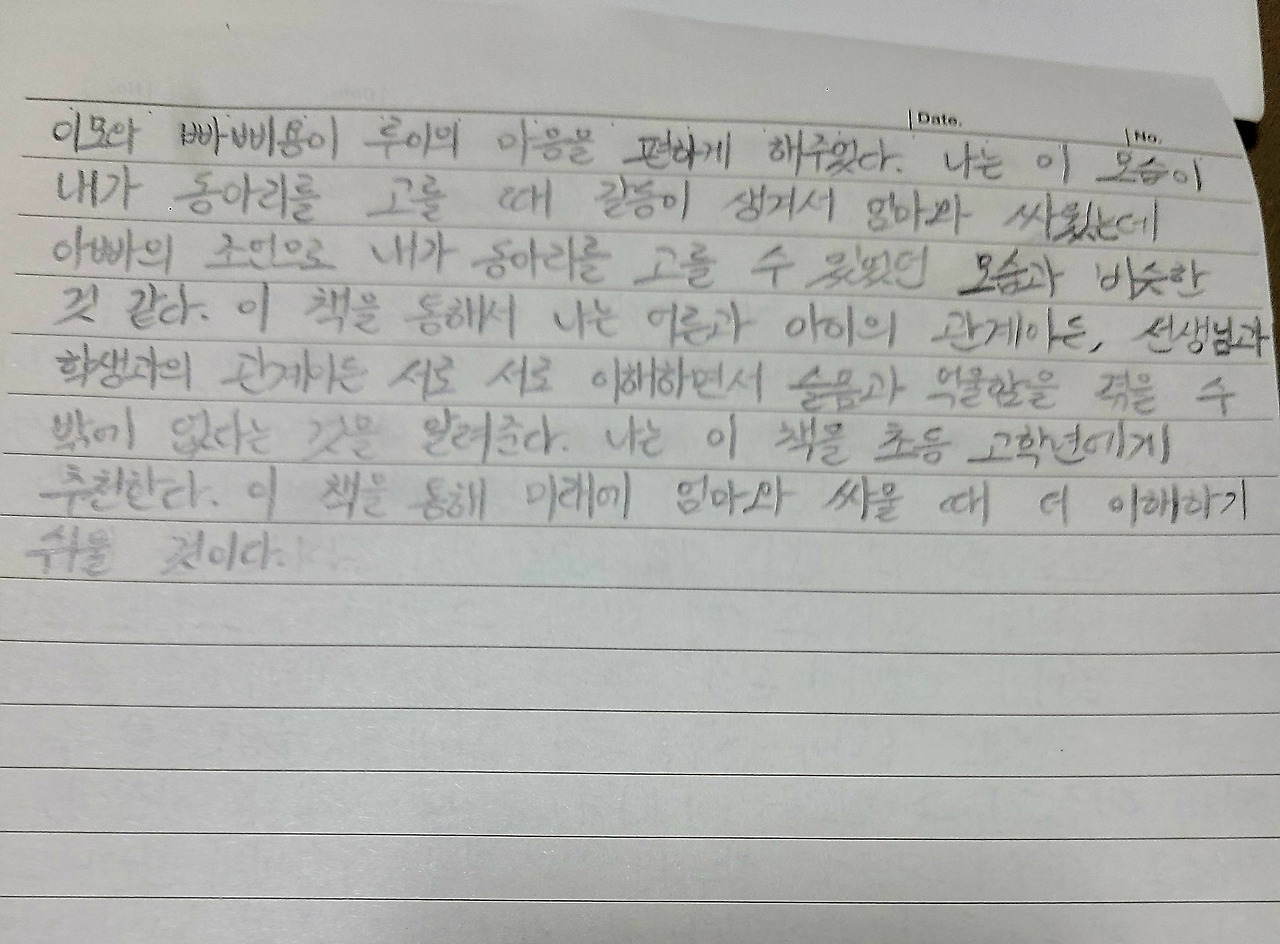 Date.
No.
이모와 빠삐용이 루이의 마음을 편하게 해주었다. 나는 이 모습이
내가 동아리를 고를 때 갈등이 생겨서 엄마와 싸웠는데
아빠의 조언으로 내가 동아리를 고를 수 있었던 모습과 비슷한
것 같다. 이 책을 통해서 나는 어른과 아이의 관계아든, 선생님과
학생과의 관계아든 서로 서로 이해하면서 슬픔과 억울함을 겪을 수
밖에 없다는 것을 알려준다. 나는 이 책을 초등 고학년에게
추천한다. 이 책을 통해 미래에 엄마와 싸울 때 더 이해하기
쉬울 것이다.